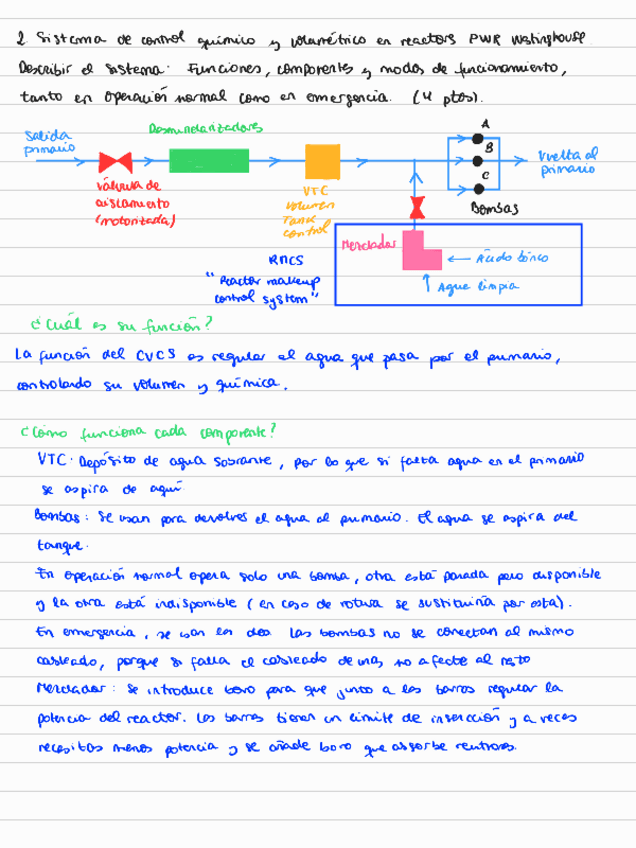 2 Sistema de control químico y volumétrico en reactors PWR Westinghouse.
Describir el sistema. Funciones, componentes y modos de funcionamiento,
tanto en operación normal como en emergencia. (4 ptos).
Salida
primario
Desmineralizadores
válvula de
aislamiento
(motorizada)
VTC
Volumen
Tank
control
A
B
C
Bombas
Vuelta al
primario
RMCS
"Reactor makeup
control system"
Mezclador
← Ácido bórico
↑ Agua limpia
¿Cuál es su función?
La función del CVCS es regular el agua que pasa por el primario,
controlando su volumen y química.
¿Cómo funciona cada componente?
VTC: Depósito de agua sobrante, por lo que si falta agua en el primario
se aspira de aquí
Bombas: Se usan para devolver el agua al primario. El agua se aspira del
tanque.
En operación normal opera solo una bomba, otra está parada pero disponible
y la otra está indisponible (en caso de rotura se sustituiría por esta).
En emergencia, se usan las dos. Las bombas no se conectan al mismo
cableado, porque si falla el cableado de una, no afecte al resto
Mezclador: Se introduce boro para que junto a las barras regular la
potencia del reactor. Las barras tienen un límite de inserción y a veces
necesitas menos potencia y se añade boro que absorbe neutrones.